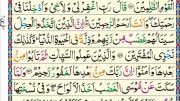 الْقَوْمِ الظّٰلِمِيْنَ قَالَ رَبِّ اغْفِرْ لِيْ وَلِاَخِيْ وَاَدْخِلْنَا فِيْ
رَحْمَتِكَ وَاَنْتَ اَرْحَمُ الرّٰحِمِيْنَ اِنَّ الَّذِيْنَ اتَّخَذُوا الْعِجْلَ
سَيَنَالُهُمْ غَضَبٌ مِّنْ رَّبِّهِمْ وَذِلَّةٌ فِي الْحَيٰوةِ الدُّنْيَا وَكَذٰلِكَ
نَجْزِي الْمُفْتَرِيْنَ وَالَّذِيْنَ عَمِلُوا السَّيِّاٰتِ ثُمَّ تَابُوْا مِنْ
بَعْدِهَا وَاٰمَنُوْا اِنَّ رَبَّكَ مِنْ بَعْدِهَا لَغَفُوْرٌ رَّحِيْمٌ وَلَمَّا